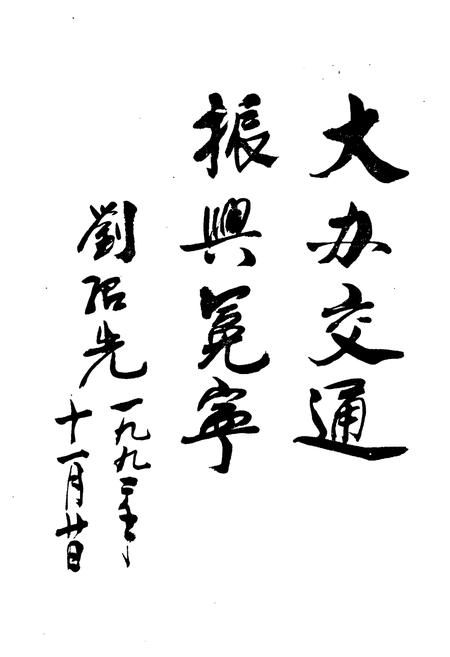 大办交通
振興冕寧
劉绍先
一九九二年
十一月廿日